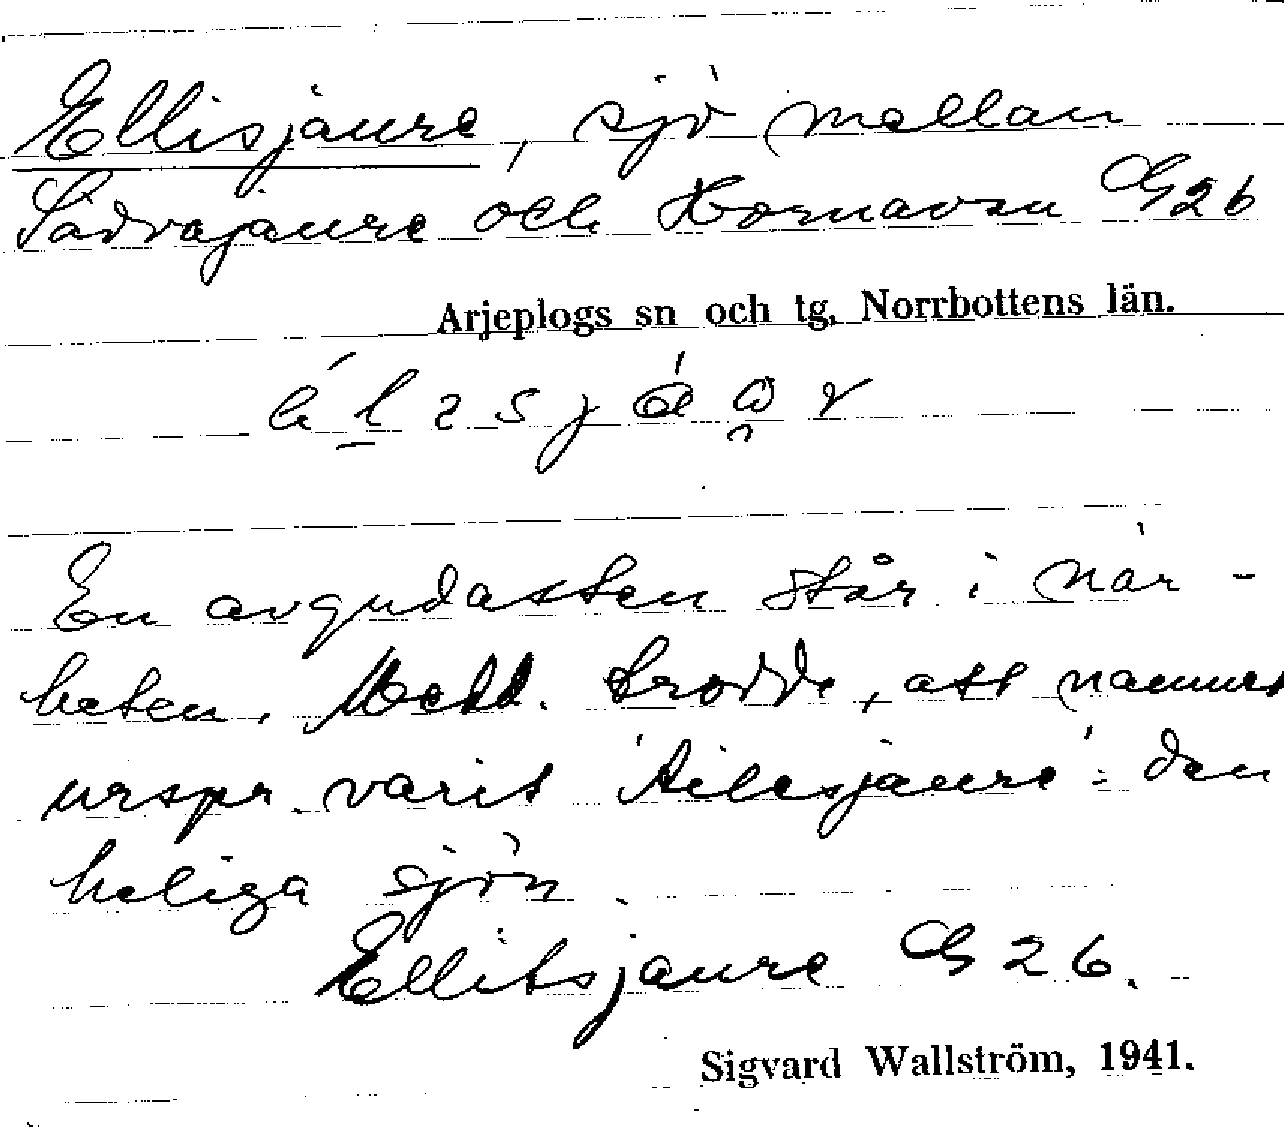 Ellisjaure, sjö mellan
Sädvajaure och Hornavan G26
Arjeplogs sn och tg, Norrbottens län.
En avgudasten står i när-
heten. Medd. trodde, att namnet
urspr. varit 'Ailesjaure' = den
heliga sjön.
Ellitsjaure G 26.
Sigvard Wallström, 1941.